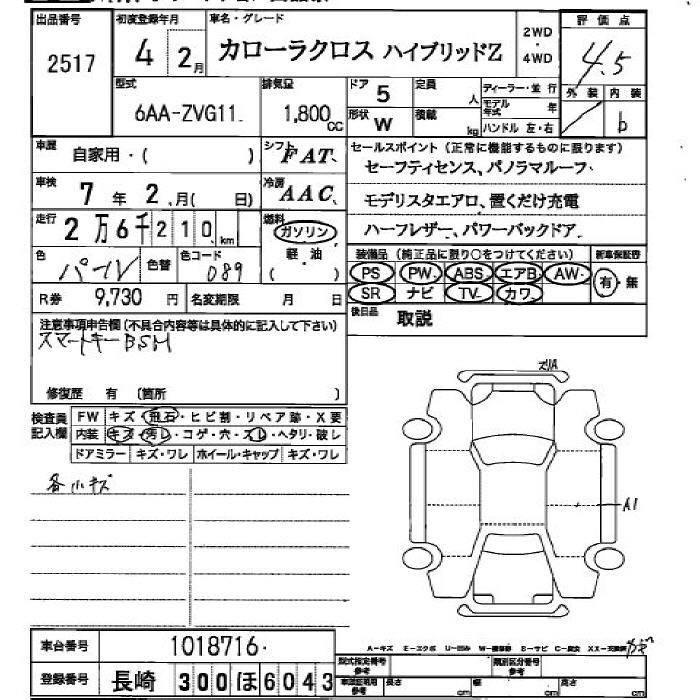 出品番号 初度登録年月 車名・グレード 評価点
2517 4 2月 カローラクロス ハイブリッドZ 2WD・4WD 4.5
外装 内装
b
型式 排気量 ドア 定員 ディーラー・並行
6AA-ZVG11 1,800cc 5 人 モデル年式 年
形状 積載 ハンドル 左・右
W kg
車歴 自家用・( ) シフト FAT セールスポイント (正常に機能するものに限ります)
セーフティセンス、パノラマルーフ
車検 7年 2月( 日) 冷房 AAC
モデリスタエアロ、置くだけ充電
走行 2万6千210km 燃料 ガソリン
軽油
( )
ハーフレザー、パワーバックドア
色 パール 色替 色コード 089
装備品 (純正品に限り○をつけてください) 新車保証書
PS PW ABS エアB AW 有・無
SR ナビ TV カワ
R券 9,730円 名変期限 月 日
後日品 取説
注意事項申告欄 (不具合内容等は具体的に記入して下さい)
スマートキー BSM
修復歴 有 〔箇所 〕
検査員記入欄 FW キズ・飛石・ヒビ割・リペア跡・X要
内装 キズ・汚レ・コゲ・穴・スレ・ヘタリ・破レ
ドアミラー キズ・ワレ ホイール・キャップ キズ・ワレ
各小キズ
A1
車台番号 1018716
A-キズ E-エクボ U-凹み
登録番号 長崎 300 ほ 6043
型式指定番号 参考 類別区分番号 参考
車検証明用 参考 長さ cm 幅 cm 高さ cm